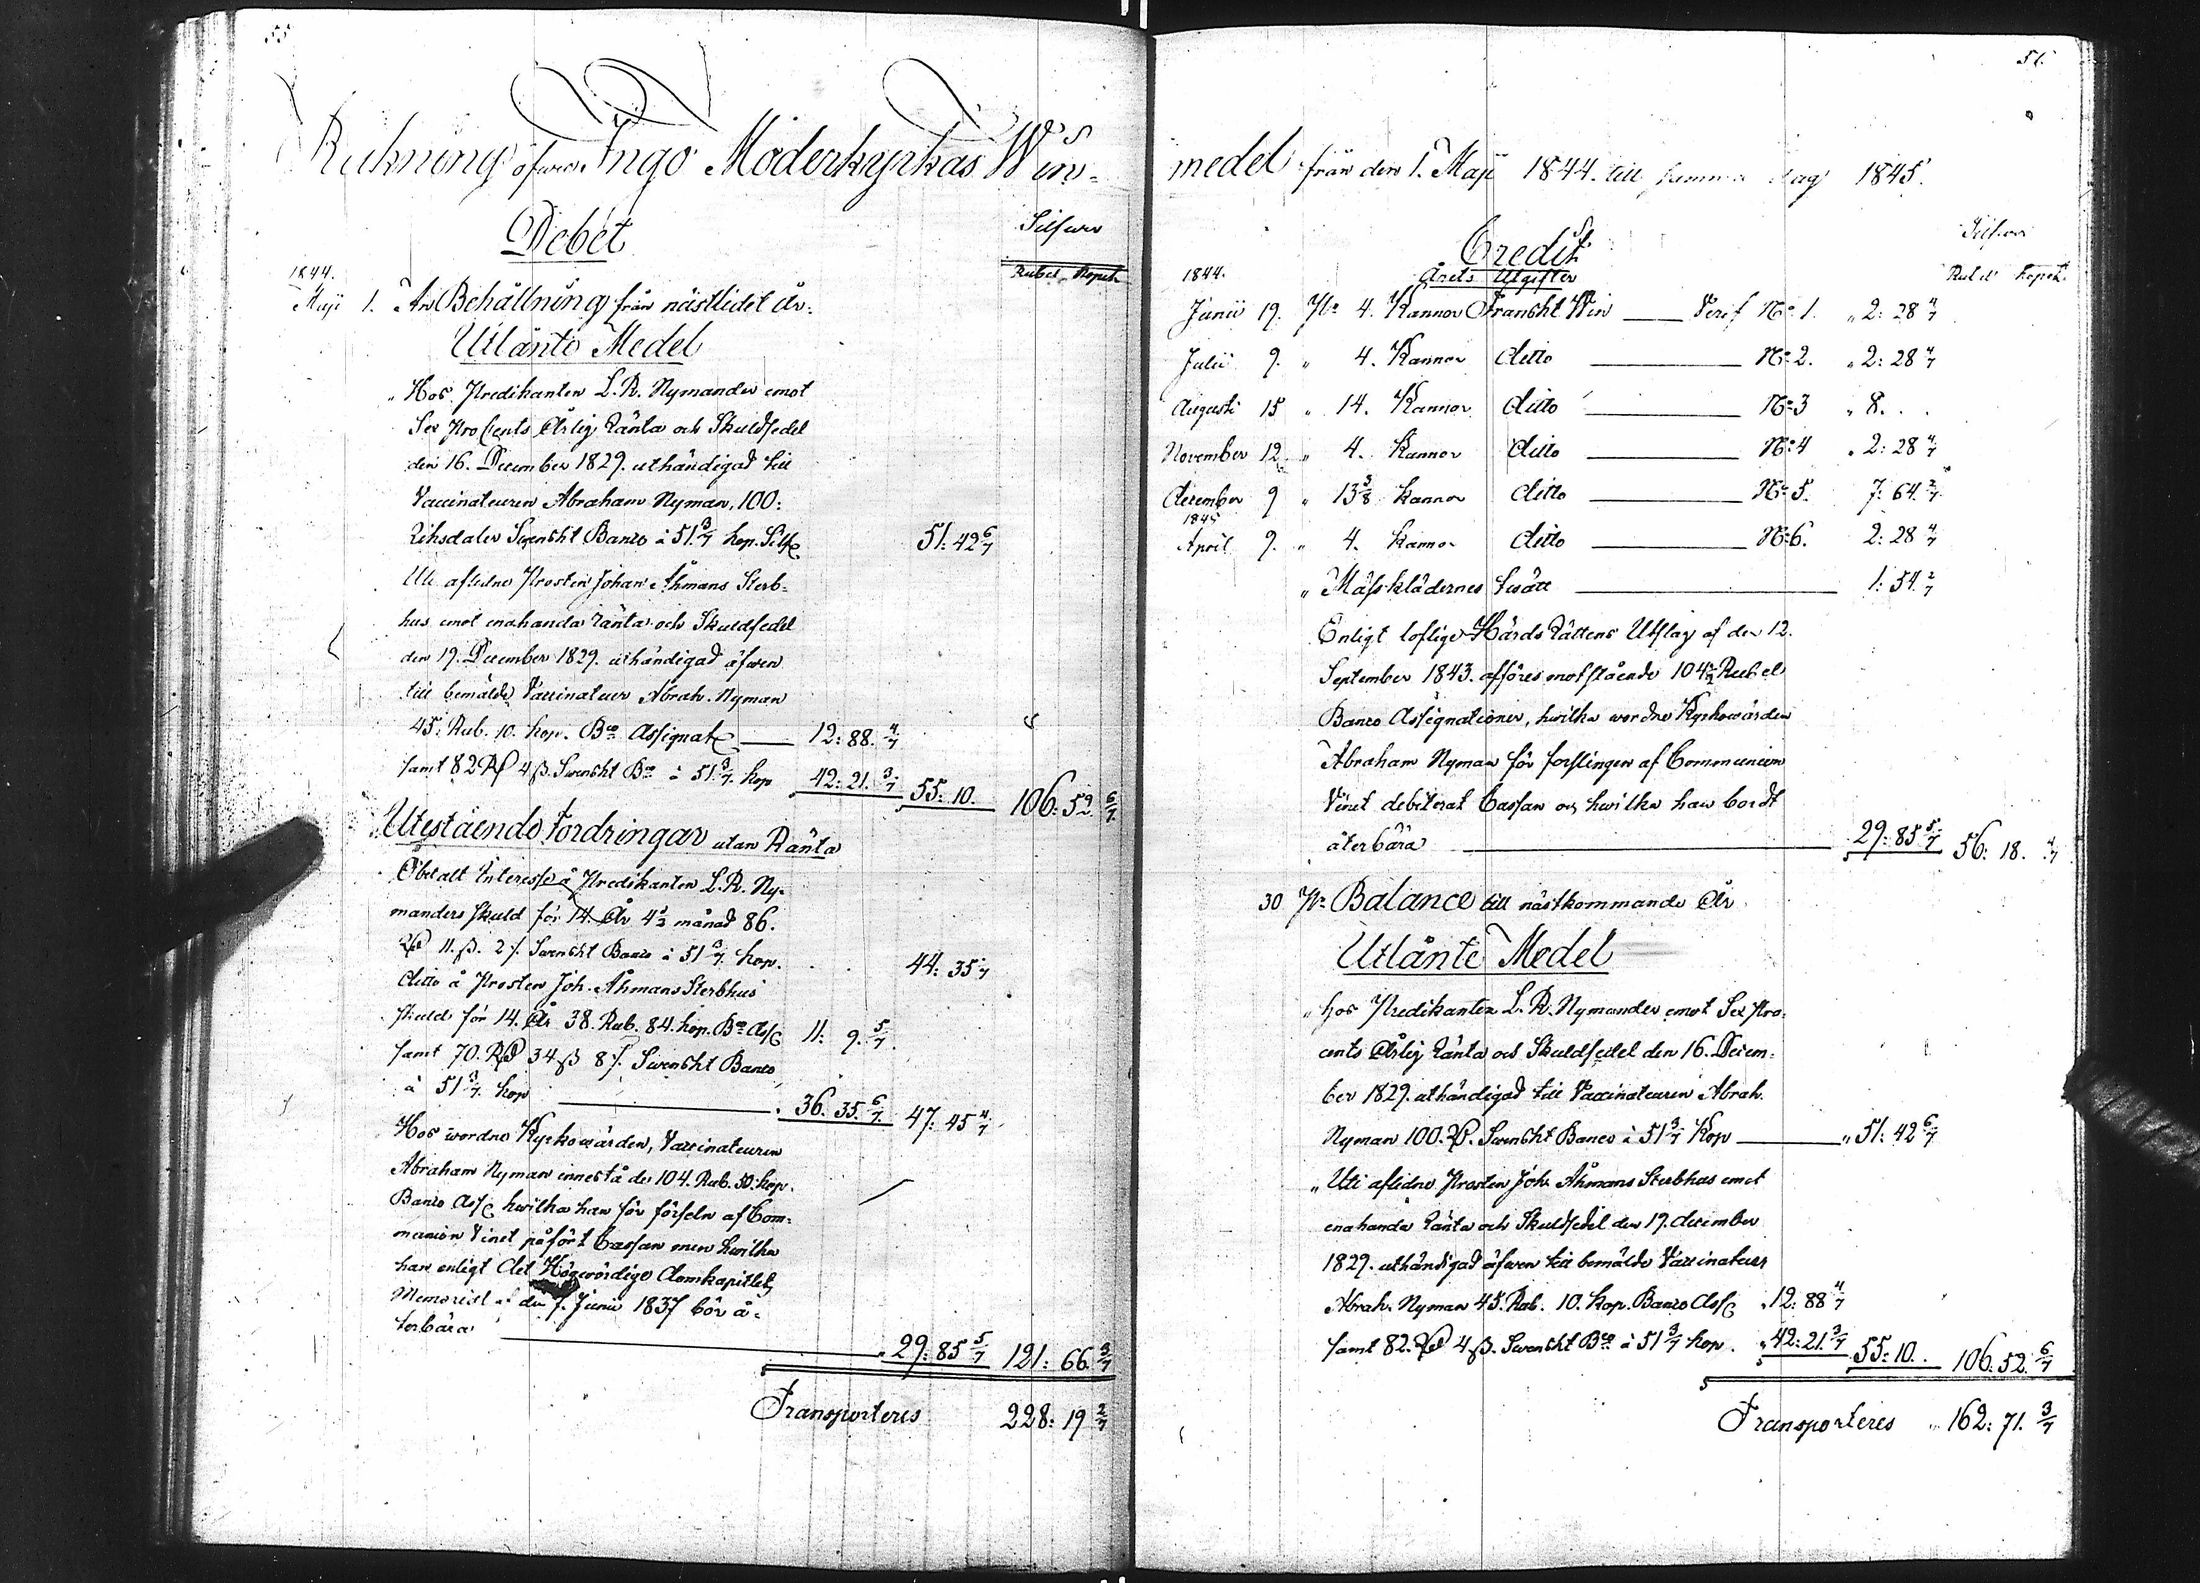 55
Räkning öfver Ingo Moderkyrkas Win-
Debet
Silfver
Rubel Kopek
1844.
Maji 1. An Behållning från nästlidet år.
Utlånte Medel
" Hos Predikanten L. R. Nymander emot
Sex ProCents Årlig Ränta och Skuldsedel
den 16. December 1829. uthändigad till
Vaccinateuren Abraham Nyman, 100:
Riksdaler Svenskt Banco à 51 3/7 kop. Silf 51: 42 6/7
Uti aflidne Prosten Johan Åhmans Sterb-
hus emot enahanda ränta och Skuldsedel
den 19. December 1829. uthändigad äfwen
till bemälde Vaccinateur Abrah. Nyman
45. Rub. 10. Kop. Bco Assignat 12: 88. 4/7
samt 82 Rd 4 ß. Swenskt Bco à 51 3/7. kop 42: 21. 3/7 55: 10. 106: 52 6/7
Utestående Fordringar utan Ränta
Obetalt Interesse å Predikanten L. R. Ny-
manders skuld för 14. År 4 1/2 månad 86.
Rd 11. ß. 2 Swenskt Banco à 51 3/7 kop. 44: 35
Ditto å Prosten Joh. Åhmans Sterbhus
skuld för 14. År 38. Rub. 84. kop. Bco Ass 11: 9. 5/7
samt 70. Rd 34 ß 8 Swenskt Banco
à 51 3/7 kop 36. 35. 6/7 47: 45 4/7
Hos wordne Kyrkowärden, Vaccinateuren
Abraham Nyman innestå de 104. Rub. 50. kop.
Banco Ass hwilka han för förseln af Com-
munion Vinet påfört Cassan men hwilka
han enligt Det Högwördige Domkapitlets
Memorial af den 7. Junii 1837 bör å-
terbära 29: 85 5/7 121: 66. 3/7
Transporteres 228: 19 2/7
medel från den 1. Maji 1844. till samma dag 1845.
Credit
Silfver
1844. Årets Utgifter Rubel Kopek.
Junii 19. Pr 4. Kannor Franskt Win Verif No 1. " 2: 28 4/7
Julii 9. " 4. Kannor Ditto No 2. " 2: 28 4/7
Augusti 15 " 14. Kannor Ditto No 3 " 8. . .
November 12 " 4. Kannor Ditto No 4 " 2: 28 4/7
December 9 " 13 5/8 Kannor Ditto No 5. 7: 64. 2/7
1845
April 9. " 4. Kannor Ditto No 6. 2: 28 4/7
" Mässklädernes 1: 54. 2/7
Enligt loflige Härds Rättens Utslag af den 12.
September 1843. afföres motstående 104 1/2 Rubel
Banco Assignationer, hwilka wordne Kyrkowärden
Abraham Nyman för forslingen af Communion
Vinet debiterat Cassan och hwilka han bordt
återbära 29: 85 5/7 56: 18. 4/7
30 Pr Balance till nästkommande År
Utlånte Medel
" hos Predikanten L. R. Nymander emot Sex Pro-
cents Årlig Ränta och Skuldsedel den 16. Decem-
ber 1829. uthändigad till Vaccinateuren Abrah.
Nyman 100. Rd. Swenskt Banco à 51 3/7 Kop " 51: 42 6/7
" Uti aflidne Prosten Joh. Åhmans Sterbhus emot
enahanda ränta och Skuldsedel den 19. December
1829. uthändigad äfwen till bemälde Vaccinateur
Abrah. Nyman 45. Rub. 10. Kop. Banco Ass 12: 88 4/7
samt 82. Rd 4 ß. Swenskt Bco à 51 3/7 kop. 42: 21. 3/7 55: 10. 106: 52. 6/7
Transporteres 162: 71. 3/7